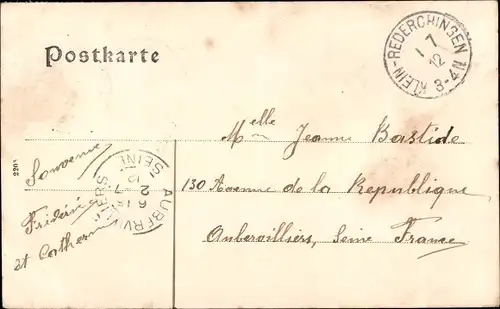 Postkarte
KLEIN-REDERCHINGEN
1 7
12
3-4N
Melle Jeanne Bastide
130 Avenue de la Republique
Aubervilliers, Seine France
Souvenir
Frédéric
et Catherin
AUBERVILLIERS
6 15
2 -7
12
SEINE